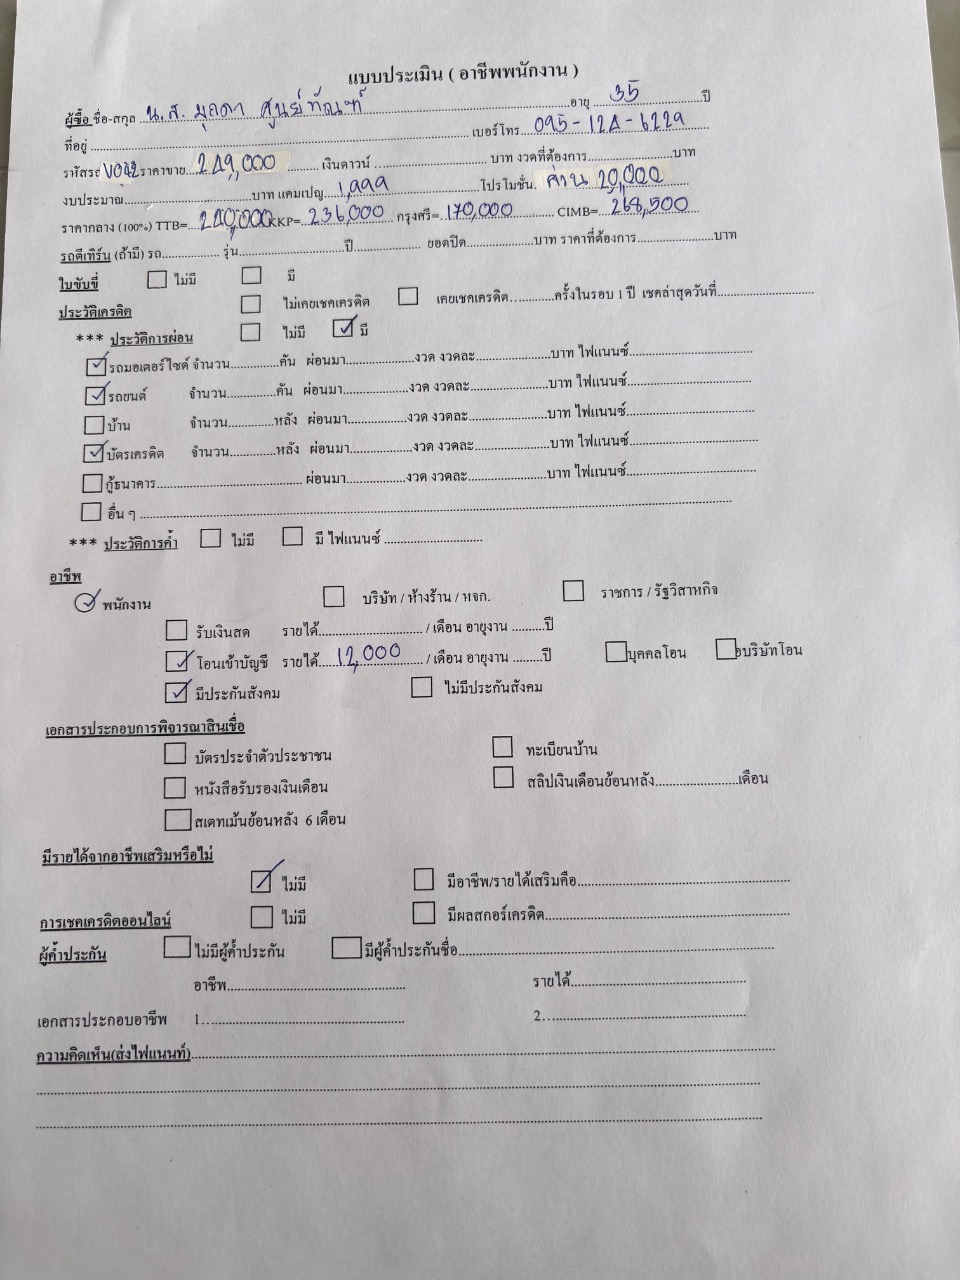 แบบประเมิน ( อาชีพพนักงาน )
ผู้ซื้อ ชื่อ-สกุล น.ส. มุกดา ศูนย์ทัณฑ์ อายุ 35 ปี
ที่อยู่ เบอร์โทร 095-124-6229
รหัสรถ V042 ราคาขาย 249,000 เงินดาวน์ บาท งวดที่ต้องการ บาท
งบประมาณ บาท แคมเปญ 1,999 โปรโมชั่น ส่วน 20,000
ราคากลาง (100%) TTB= 240,000 KKP= 236,000 กรุงศรี= 170,000 CIMB= 268,500
รถตีเทิร์น (ถ้ามี) รถ รุ่น ปี ยอดปิด บาท ราคาที่ต้องการ บาท
ใบขับขี่ ไม่มี มี
ประวัติเครดิต ไม่เคยเชคเครดิต เคยเชคเครดิต ครั้งในรอบ 1 ปี เชคล่าสุดวันที่
*** ประวัติการผ่อน ไม่มี มี
รถมอเตอร์ไซด์ จำนวน คัน ผ่อนมา งวด งวดละ บาท ไฟแนนซ์
รถยนต์ จำนวน คัน ผ่อนมา งวด งวดละ บาท ไฟแนนซ์
บ้าน จำนวน หลัง ผ่อนมา งวด งวดละ บาท ไฟแนนซ์
บัตรเครดิต จำนวน หลัง ผ่อนมา งวด งวดละ บาท ไฟแนนซ์
กู้ธนาคาร ผ่อนมา งวด งวดละ บาท ไฟแนนซ์
อื่น ๆ
*** ประวัติการค้ำ ไม่มี มี ไฟแนนซ์
อาชีพ
พนักงาน บริษัท / ห้างร้าน / หจก. ราชการ / รัฐวิสาหกิจ
รับเงินสด รายได้ / เดือน อายุงาน ปี
โอนเข้าบัญชี รายได้ 12,000 / เดือน อายุงาน ปี บุคคลโอน บริษัทโอน
มีประกันสังคม ไม่มีประกันสังคม
เอกสารประกอบการพิจารณาสินเชื่อ
บัตรประจำตัวประชาชน ทะเบียนบ้าน
หนังสือรับรองเงินเดือน สลิปเงินเดือนย้อนหลัง เดือน
สเตทเม้นย้อนหลัง 6 เดือน
มีรายได้จากอาชีพเสริมหรือไม่
ไม่มี มีอาชีพ/รายได้เสริมคือ
การเชคเครดิตออนไลน์ ไม่มี มีผลสกอร์เครดิต
ผู้ค้ำประกัน ไม่มีผู้ค้ำประกัน มีผู้ค้ำประกันชื่อ
อาชีพ รายได้
เอกสารประกอบอาชีพ 1 2
ความคิดเห็น(ส่งไฟแนนท์)